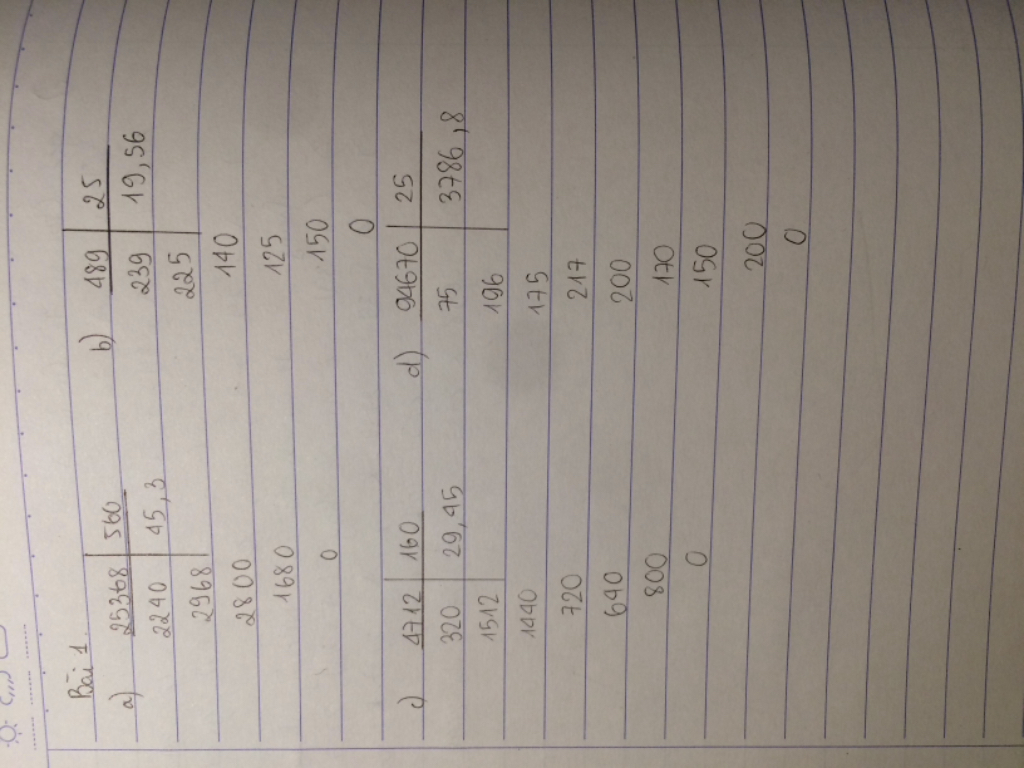 Bài 1
a) 25368 560
2240 45,3
2968
2800
1680
0
b) 489 25
239 19,56
225
140
125
150
0
c) 4712 160
320 29,45
1512
1440
720
640
800
0
d) 94670 25
75 3786,8
196
175
217
200
170
150
200
0